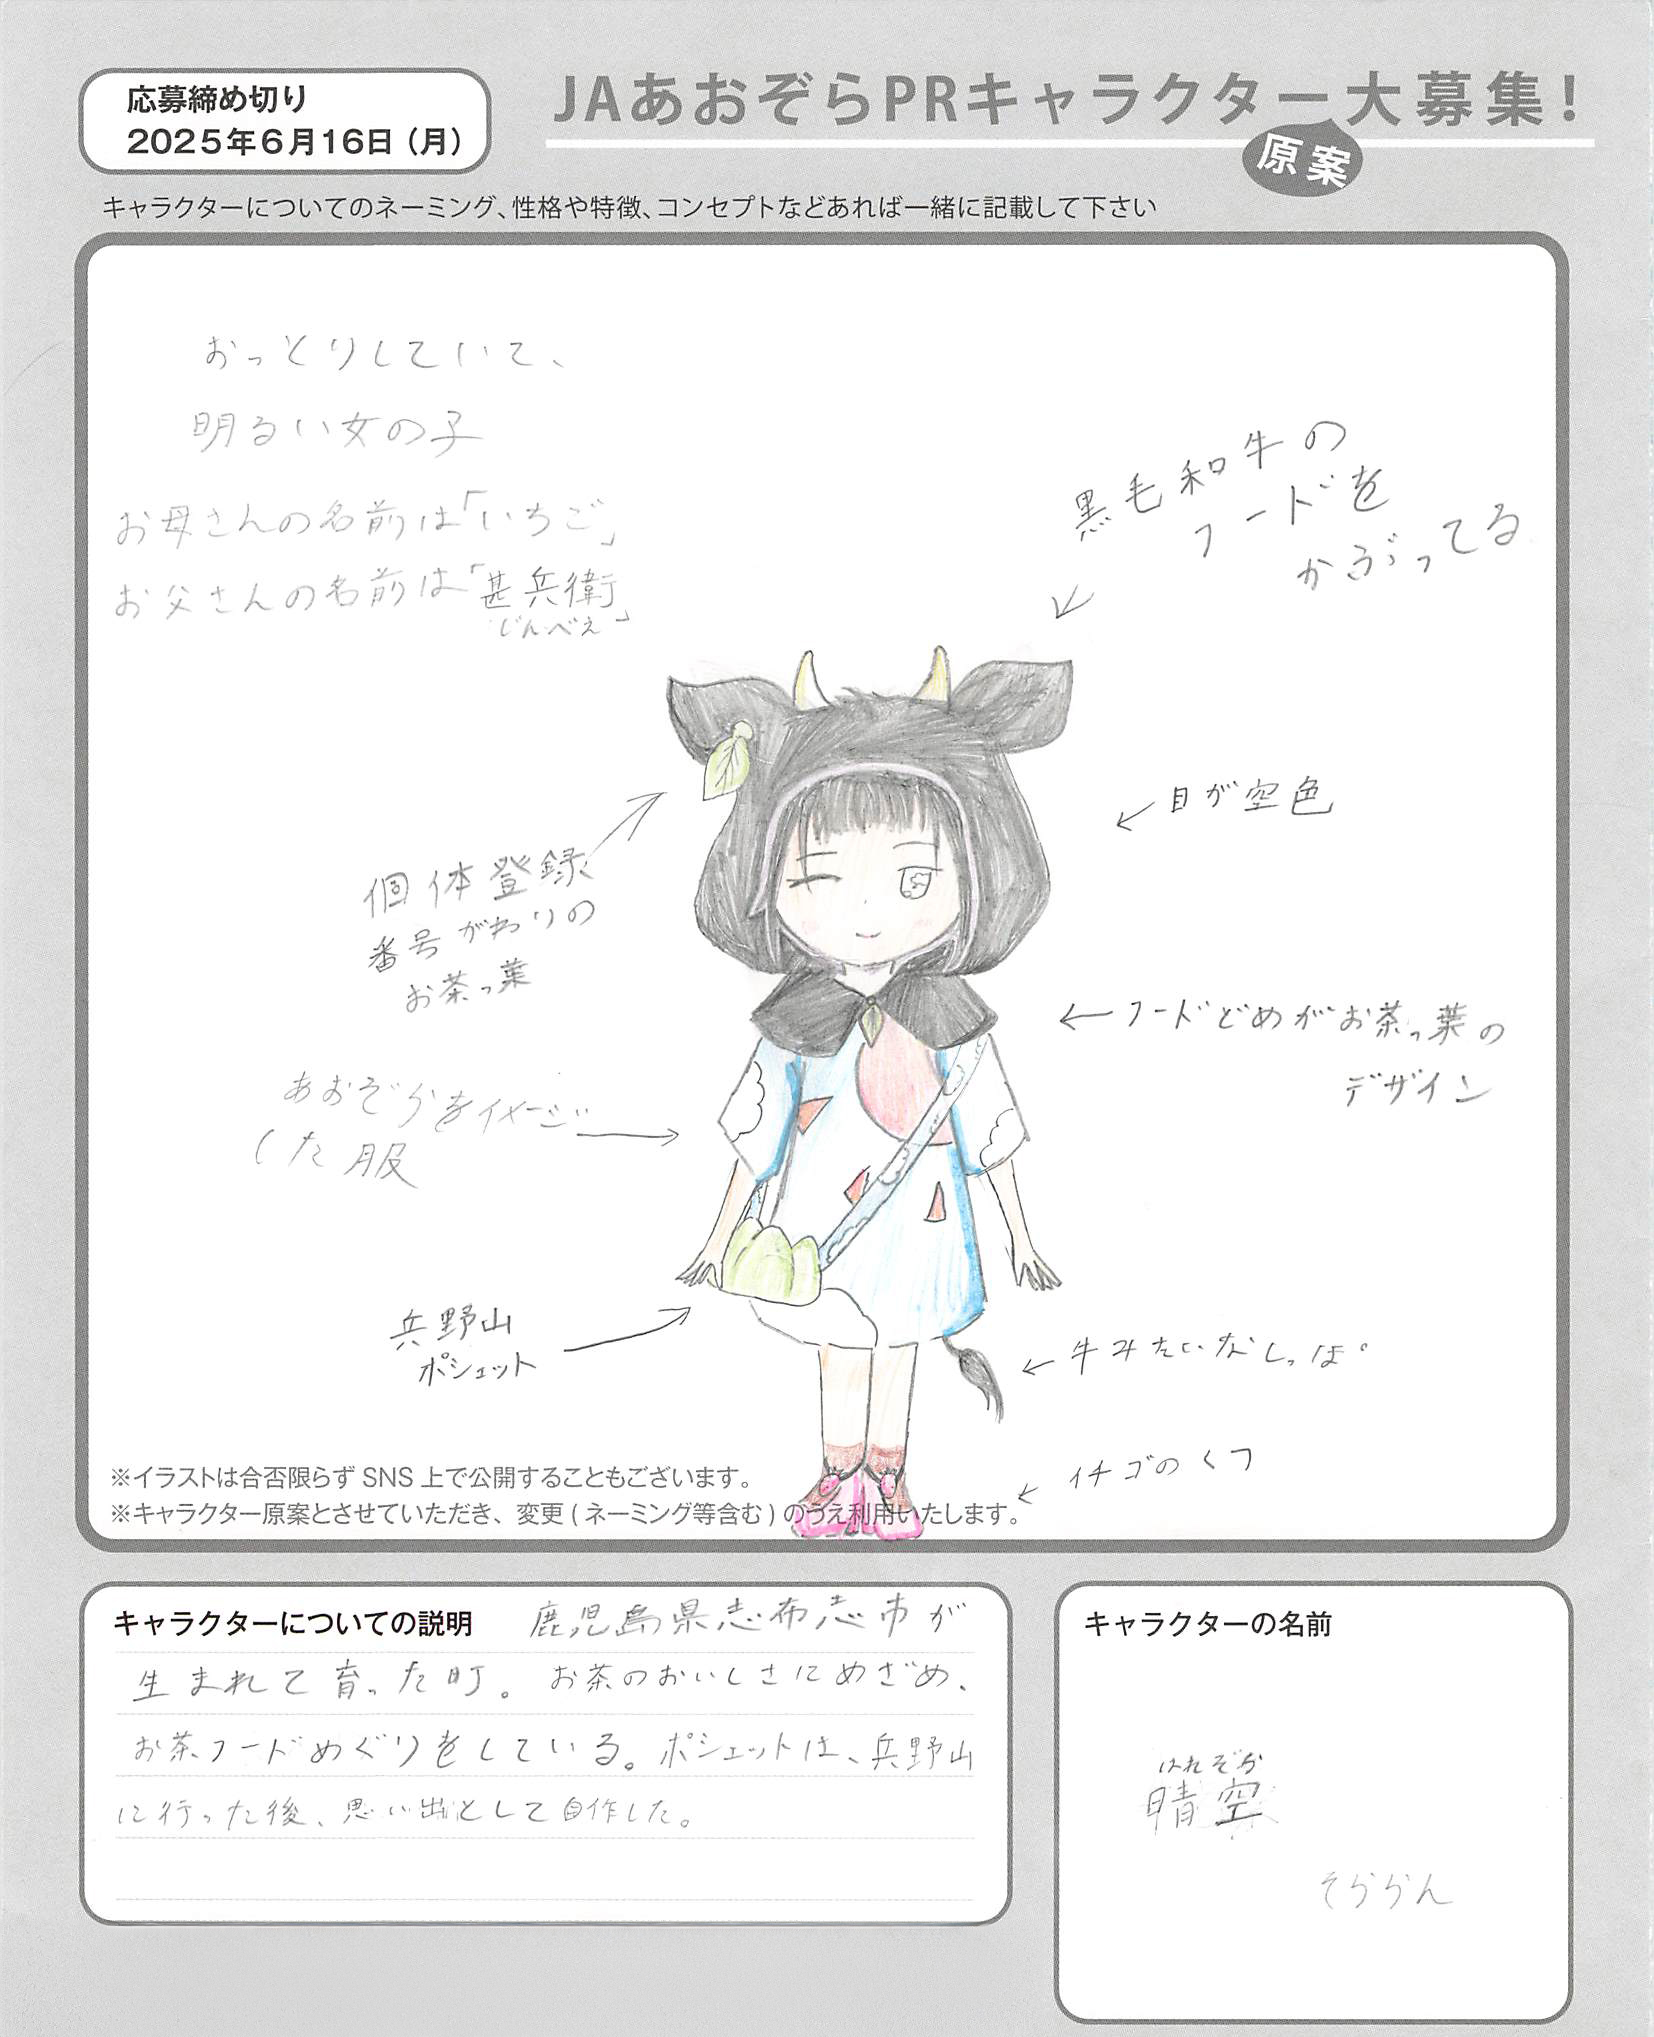 応募締め切り
2025年6月16日（月）
JAあおぞらPRキャラクター大募集！
原案
キャラクターについてのネーミング、性格や特徴、コンセプトなどあれば一緒に記載して下さい
おっとりしていて、
明るい女の子
お母さんの名前は「いちご」
お父さんの名前は「甚兵衛」
じんべえ
黒毛和牛の
フードを
かぶってる
目が空色
個体登録
番号がわりの
お茶っ葉
フードどめがお茶っ葉の
デザイン
あおぞらをイメージ
した服
兵野山
ポシェット
牛みたいなしっぽ
イチゴのくつ
※イラストは合否限らずSNS上で公開することもございます。
※キャラクター原案とさせていただき、変更(ネーミング等含む)のうえ利用いたします。
キャラクターについての説明 鹿児島県志布志市が
生まれて育った町。お茶のおいしさにめざめ、
お茶フードめぐりをしている。ポシェットは、兵野山
に行った後、思い出として自作した。
キャラクターの名前
はれぞら
晴空
そららん